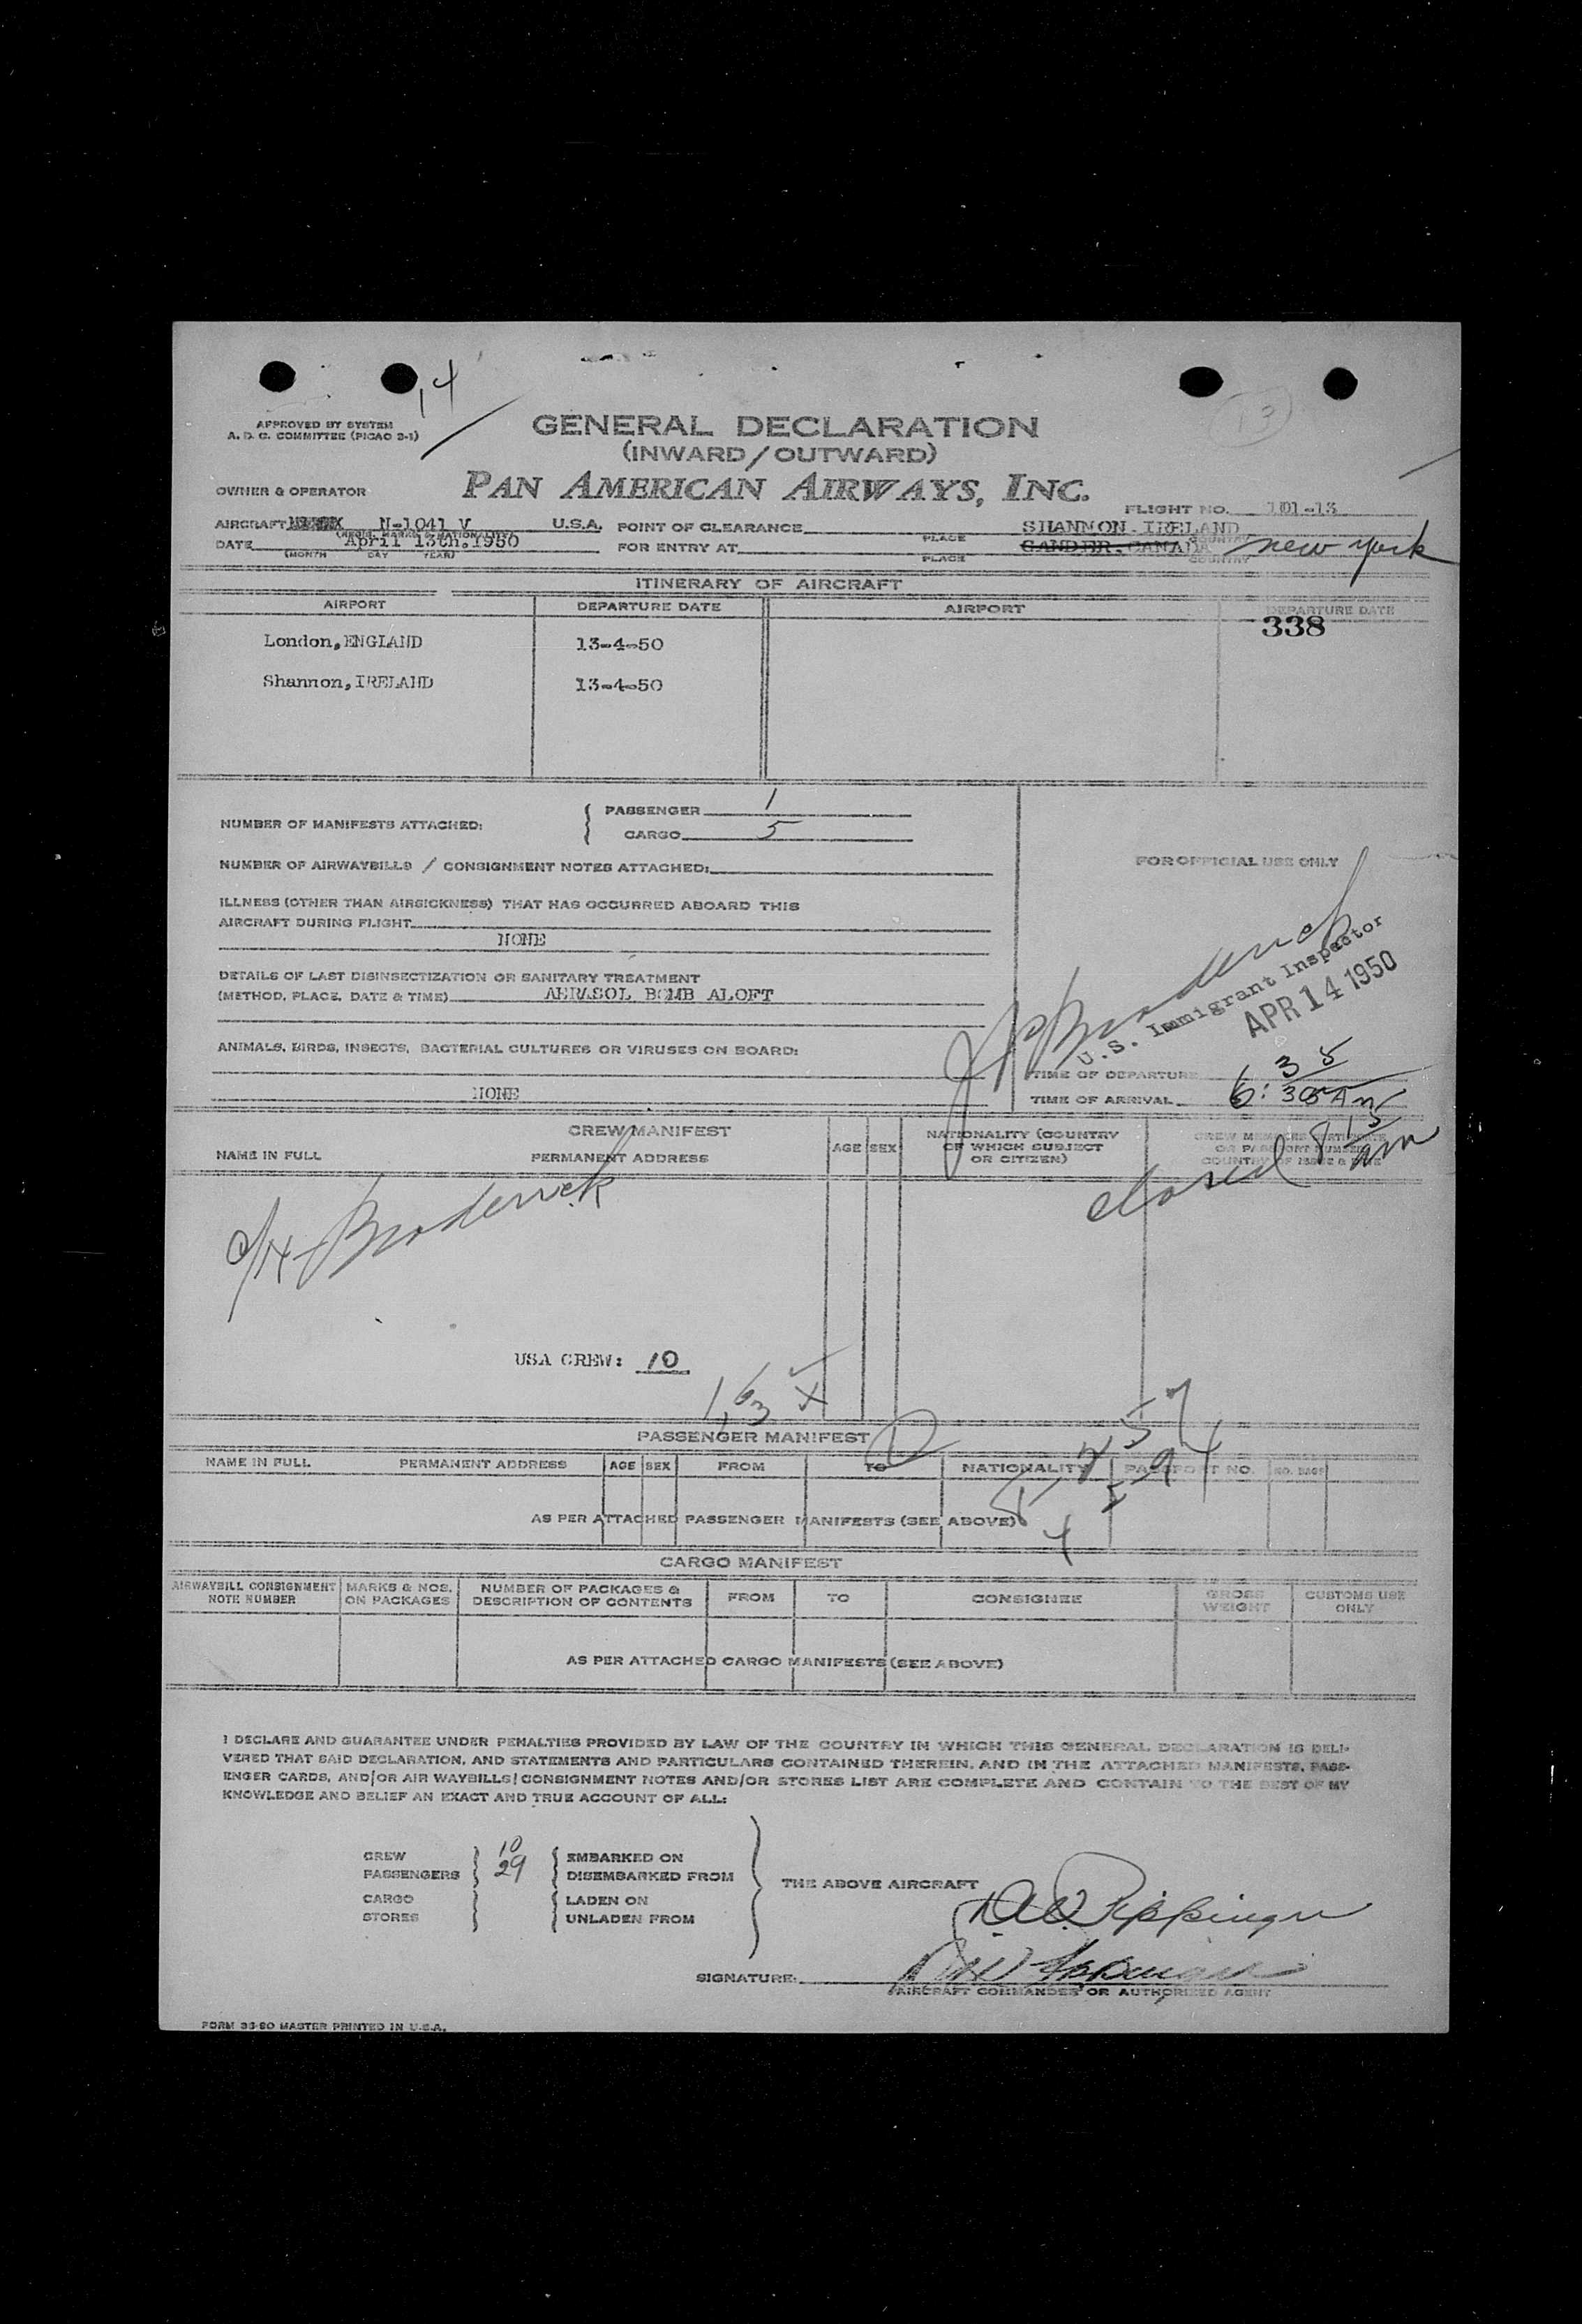 14
APPROVED BY SYSTEM
A. D. C. COMMITTEE (PICAO 2-1)
GENERAL DECLARATION
(INWARD/OUTWARD)
13
OWNER & OPERATOR
PAN AMERICAN AIRWAYS, INC.
FLIGHT NO. 101-13
AIRCRAFT N-1041 V U.S.A. POINT OF CLEARANCE SHANNON, IRELAND
(REGIS. MARKS & NATIONALITY) PLACE COUNTRY
DATE April 13th, 1950 FOR ENTRY AT GANDER, CANADA new york
(MONTH DAY YEAR) PLACE COUNTRY
ITINERARY OF AIRCRAFT
AIRPORT DEPARTURE DATE AIRPORT DEPARTURE DATE
338
London, ENGLAND 13-4-50
Shannon, IRELAND 13-4-50
NUMBER OF MANIFESTS ATTACHED: PASSENGER 1
CARGO 5
NUMBER OF AIRWAYBILLS / CONSIGNMENT NOTES ATTACHED:
FOR OFFICIAL USE ONLY
ILLNESS (OTHER THAN AIRSICKNESS) THAT HAS OCCURRED ABOARD THIS
AIRCRAFT DURING FLIGHT
NONE
DETAILS OF LAST DISINSECTIZATION OR SANITARY TREATMENT
(METHOD, PLACE, DATE & TIME) AERASOL BOMB ALOFT
Broderick
U.S. Immigrant Inspector
APR 14 1950
ANIMALS, BIRDS, INSECTS, BACTERIAL CULTURES OR VIRUSES ON BOARD:
NONE
TIME OF DEPARTURE
TIME OF ARRIVAL 6:35 AM
closed 8 15 am
CREW MANIFEST
NAME IN FULL PERMANENT ADDRESS AGE SEX NATIONALITY (COUNTRY OF WHICH SUBJECT OR CITIZEN) CREW MEMBERS CERTIFICATE OR PASSPORT NUMBER COUNTRY OF ISSUE & DATE
Broderick
USA CREW: 10
PASSENGER MANIFEST
NAME IN FULL PERMANENT ADDRESS AGE SEX FROM TO NATIONALITY PASSPORT NO. NO. BAGS
AS PER ATTACHED PASSENGER MANIFESTS (SEE ABOVE)
CARGO MANIFEST
AIRWAYBILL CONSIGNMENT NOTE NUMBER MARKS & NOS. ON PACKAGES NUMBER OF PACKAGES & DESCRIPTION OF CONTENTS FROM TO CONSIGNEE GROSS WEIGHT CUSTOMS USE ONLY
AS PER ATTACHED CARGO MANIFESTS (SEE ABOVE)
I DECLARE AND GUARANTEE UNDER PENALTIES PROVIDED BY LAW OF THE COUNTRY IN WHICH THIS GENERAL DECLARATION IS DELI-
VERED THAT SAID DECLARATION, AND STATEMENTS AND PARTICULARS CONTAINED THEREIN, AND IN THE ATTACHED MANIFESTS, PASS-
ENGER CARDS, AND/OR AIR WAYBILLS/CONSIGNMENT NOTES AND/OR STORES LIST ARE COMPLETE AND CONTAIN TO THE BEST OF MY
KNOWLEDGE AND BELIEF AN EXACT AND TRUE ACCOUNT OF ALL:
CREW 10 EMBARKED ON
PASSENGERS 29 DISEMBARKED FROM
THE ABOVE AIRCRAFT
CARGO LADEN ON
STORES UNLADEN FROM
SIGNATURE:
AIRCRAFT COMMANDER OR AUTHORIZED AGENT
FORM 35-80 MASTER PRINTED IN U.S.A.